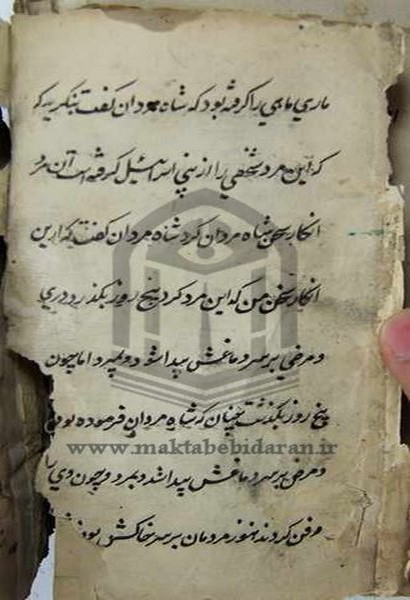 ماری ماهی را گرفته بود که شاه مردان گفت بنگرید که
که این مرد شخصی را از بنی اسرائیل گرفته است آن مرد
انکار سخن شاه مردان کرد شاه مردان گفت که ازین
انکار سخن من که این مرد کرد پنج روز بگذرد دردی
و مرضی بر سر و دماغش پیدا شود و بمیرد اما چون
پنج روز بگذشت چنان که شاه مردان فرموده بود
www.maktabebidaran.ir
و مرض بر سر و دماغش پیدا شد و بمرد و چون وی را
دفن کردند هنوز مردمان بر سر خاکش بودند